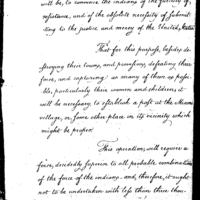 will be, to convince the indians of the futility of
resistance, and of the absolute necessity of submit
ting to the justice and mercy of the United States
That for this purpose, besides de-
stroying their towns, and provisions, defeating their
force, and capturing as many of them as possi-
ble, particularly their women and children, it
will be necessary to establish a post at the Miami
village, or some other place in its vicinity which
might be proper.
This operation, will require a
force, decidedly superior to all probable combinations
of the force of the indians, and, therefore, it ought
not to be undertaken with less than three thou-